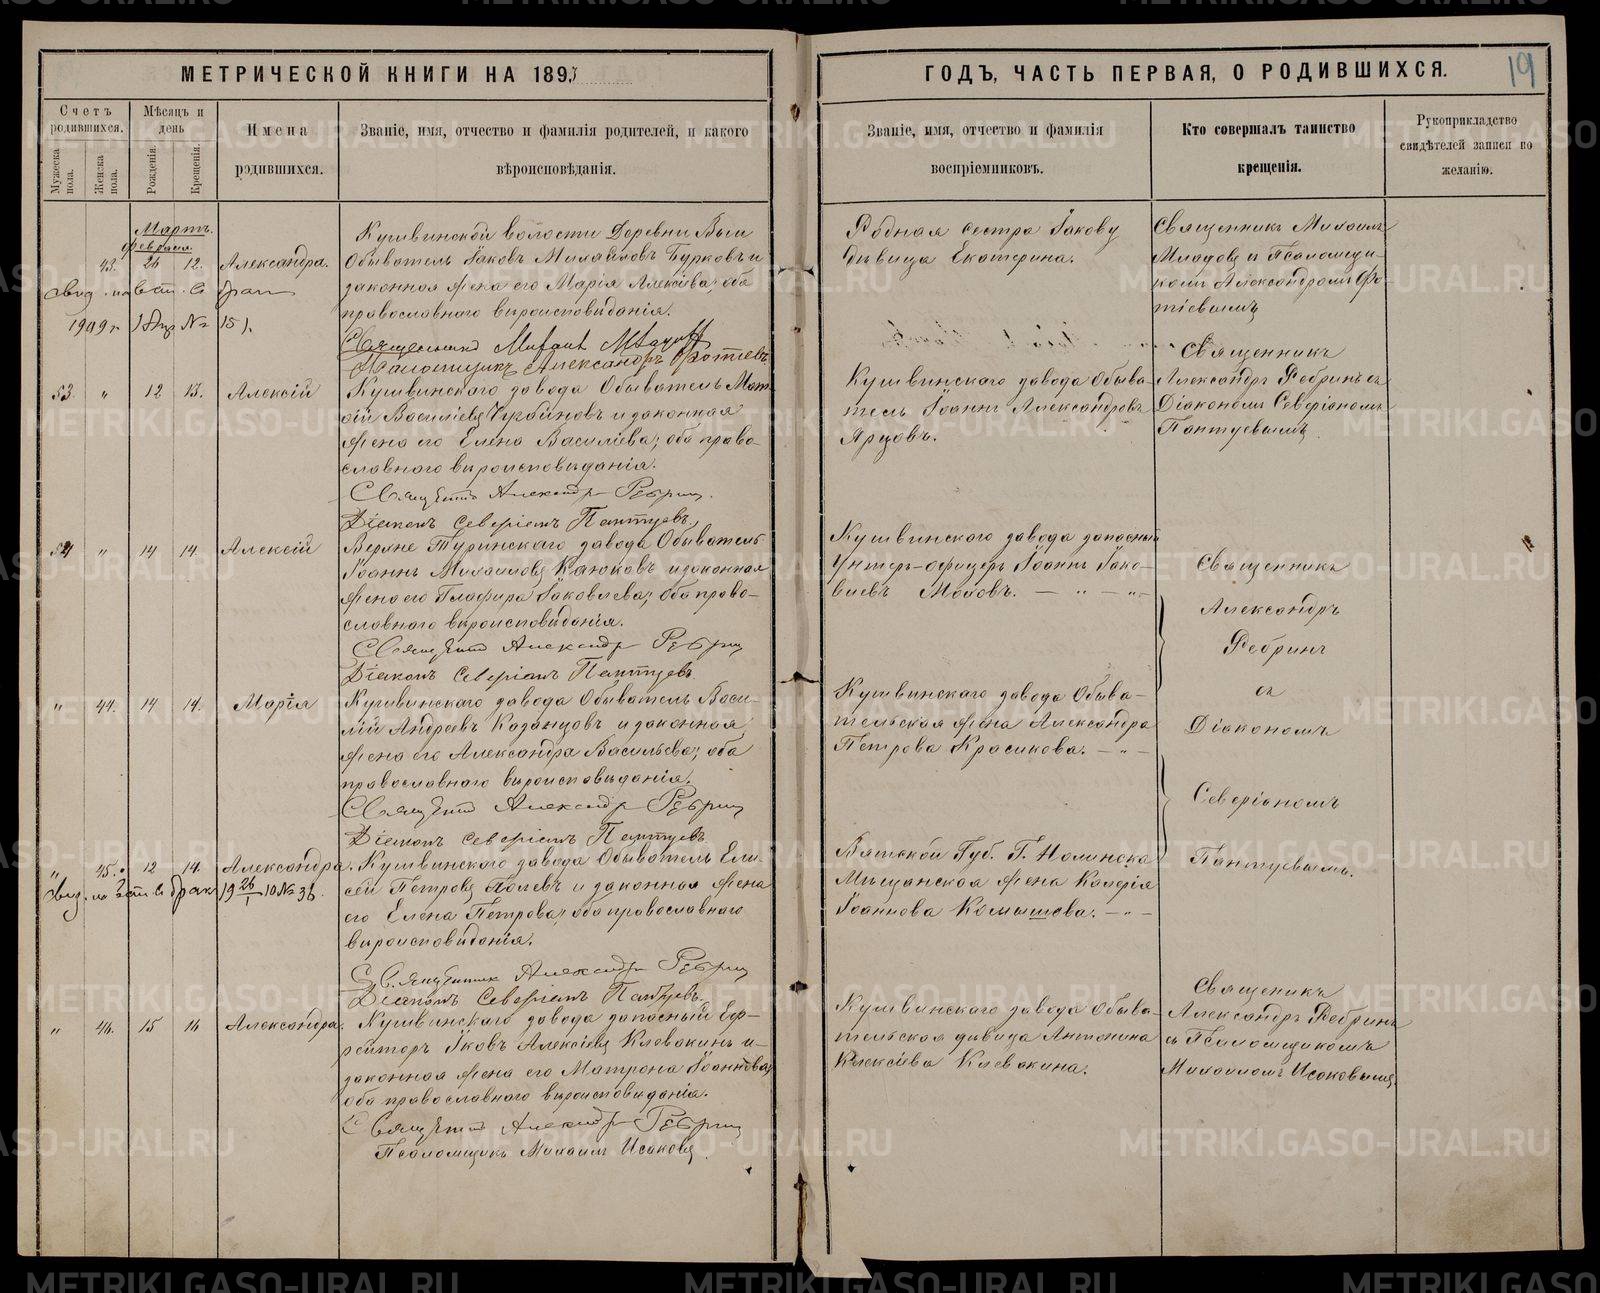 МЕТРИЧЕСКОЙ КНИГИ НА 1893
ГОДЪ, ЧАСТЬ ПЕРВАЯ, О РОДИВШИХСЯ.
19
Счетъ родившихся.
Мужеска пола.
Женска пола.
Мѣсяцъ и день
Рожденія.
Крещенія.
Имена родившихся.
Званіе, имя, отчество и фамилія родителей, и какого вѣроисповѣданія.
Званіе, имя, отчество и фамилія воспріемниковъ.
Кто совершалъ таинство крещенія.
Рукоприкладство свидѣтелей записи по желанію.
Мартъ.
февраля.
43. 26 12. Александра.
1909 г.
Кушвинской волости Деревни Выи
Обыватель Іаковъ Михайловъ Бурковъ и
законная жена его Марія Алексіева; оба
православнаго вѣроисповѣданія.
Псаломщикъ Александръ Фотіевъ
Родная сестра Іакову
дѣвица Екатерина.
Священникъ Михаилъ
Младовъ съ Псаломщи-
комъ Александромъ Фо-
тіевымъ
53 " 12 13. Алексій
Кушвинскаго завода Обыватель Мат-
ѳій Василіевъ Чурбановъ и законная
жена его Елена Василіева; оба право-
славнаго вѣроисповѣданія.
Священникъ Александръ Ребринъ.
Діаконъ Северіанъ Пантуевъ.
Кушвинскаго завода Обыва-
тель Іоаннъ Александровъ
Ярцовъ.
Священникъ
Александръ Ребринъ съ
Діакономъ Северіаномъ
Пантуевымъ
54 " 14 14. Алексій
Верхне Туринскаго завода Обыватель
Іоаннъ Михаиловъ Канюковъ и законная
жена его Глафира Іаковлева; оба право-
славнаго вѣроисповѣданія.
Священникъ Александръ Ребринъ
Діаконъ Северіанъ Пантуевъ.
Кушвинскаго завода запасный
Унтеръ-офицеръ Іоаннъ Іако-
влевъ
Священникъ
Александръ
Ребринъ
съ
Діакономъ
Северіаномъ
Пантуевымъ.
" 44. 14 14. Марія
Кушвинскаго завода Обыватель Васи-
лій Андреевъ Казанцовъ и законная
жена его Александра Васильева; оба
православнаго вѣроисповѣданія.
Священникъ Александръ Ребринъ
Діаконъ Северіанъ Пантуевъ.
Кушвинскаго завода Обыва-
тельская жена Александра
Петрова Красикова.
" 45. 12 14. Александра.
Кушвинскаго завода Обыватель Ели-
сей Петровъ Полевъ и законная жена
его Елена Петрова; оба православнаго
вѣроисповѣданія.
Священникъ Александръ Ребринъ
Діаконъ Северіанъ Пантуевъ.
Вятской Губ. Г. Нолинска
Мѣщанская жена
Іоаннова Комышева.
" 46. 15 16 Александра.
Кушвинскаго завода запасный Еф-
рейторъ Іаковъ Алексіевъ Клевакинъ и
законная жена его Матрона Іоаннова;
оба православнаго вѣроисповѣданія.
Священникъ Александръ Ребринъ
Псаломщикъ Михаилъ Исаковъ.
Кушвинскаго завода Обыва-
тельская дѣвица Антонина
Алексіева Клевакина.
Священникъ
Александръ Ребринъ
съ Псаломщикомъ
Михаиломъ Исаковымъ.
METRIKI.GASO-URAL.RU